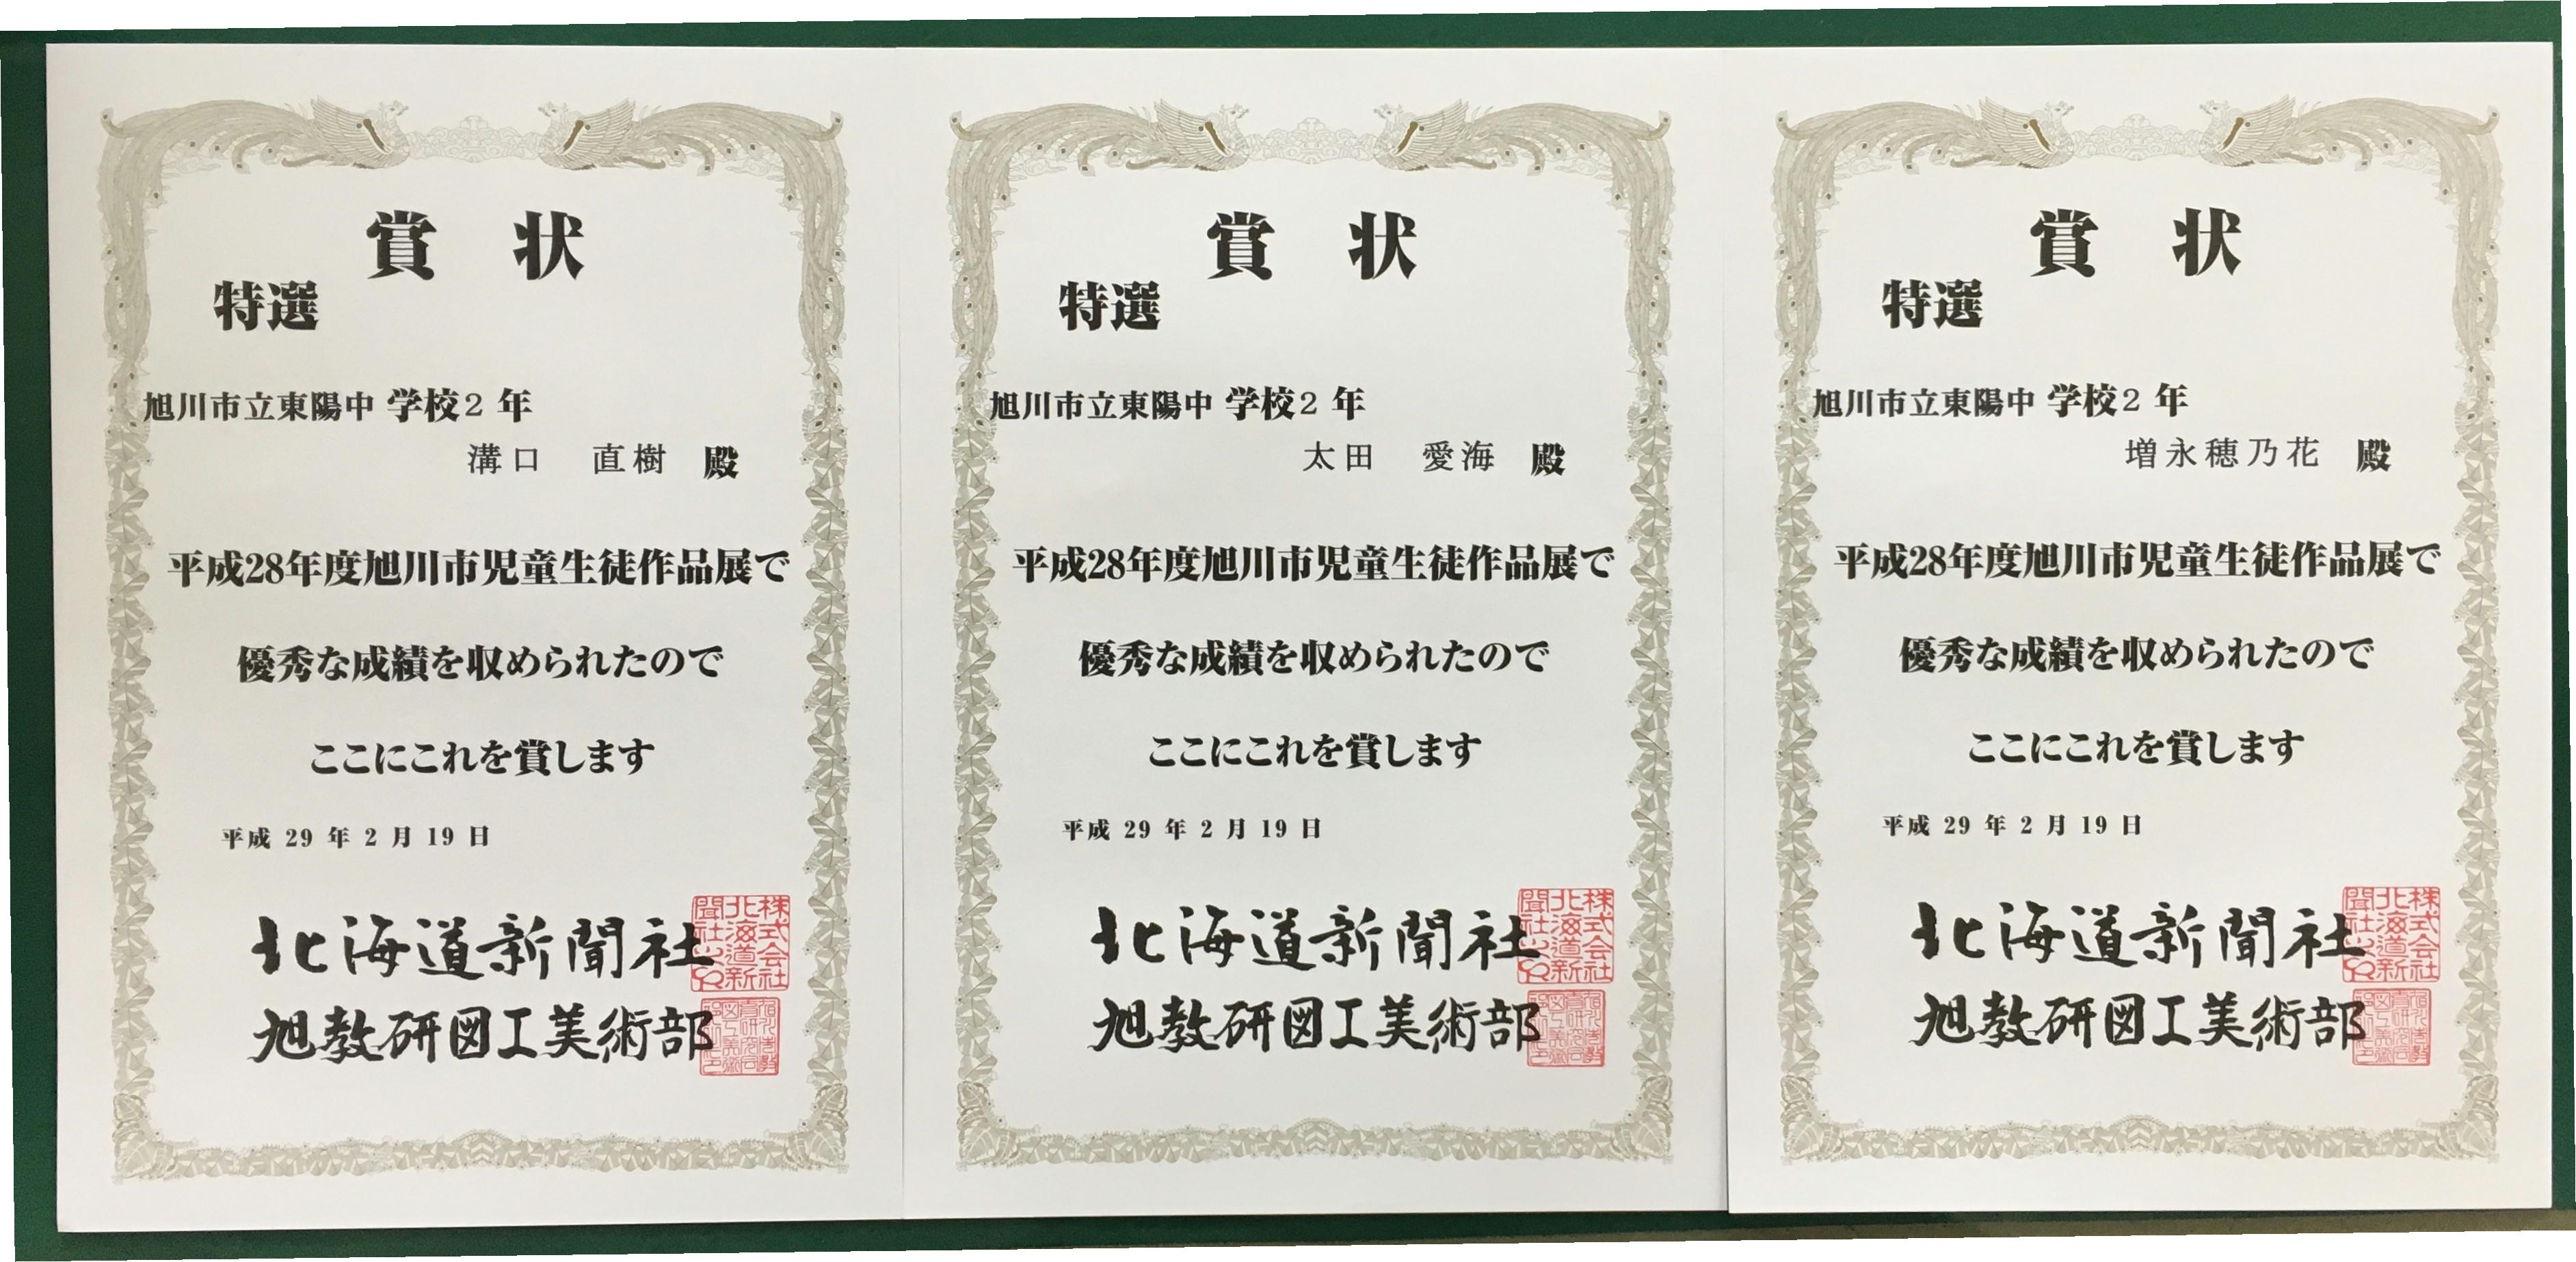 賞 状
特選
旭川市立東陽中 学校2 年
溝口 直樹 殿
平成28年度旭川市児童生徒作品展で
優秀な成績を収められたので
ここにこれを賞します
平成 29 年 2 月 19 日
北海道新聞社
株式会社北海道新聞社之印
旭教研図工美術部
賞 状
特選
旭川市立東陽中 学校2 年
太田 愛海 殿
平成28年度旭川市児童生徒作品展で
優秀な成績を収められたので
ここにこれを賞します
平成 29 年 2 月 19 日
北海道新聞社
株式会社北海道新聞社之印
旭教研図工美術部
賞 状
特選
旭川市立東陽中 学校2 年
増永穂乃花 殿
平成28年度旭川市児童生徒作品展で
優秀な成績を収められたので
ここにこれを賞します
平成 29 年 2 月 19 日
北海道新聞社
株式会社北海道新聞社之印
旭教研図工美術部